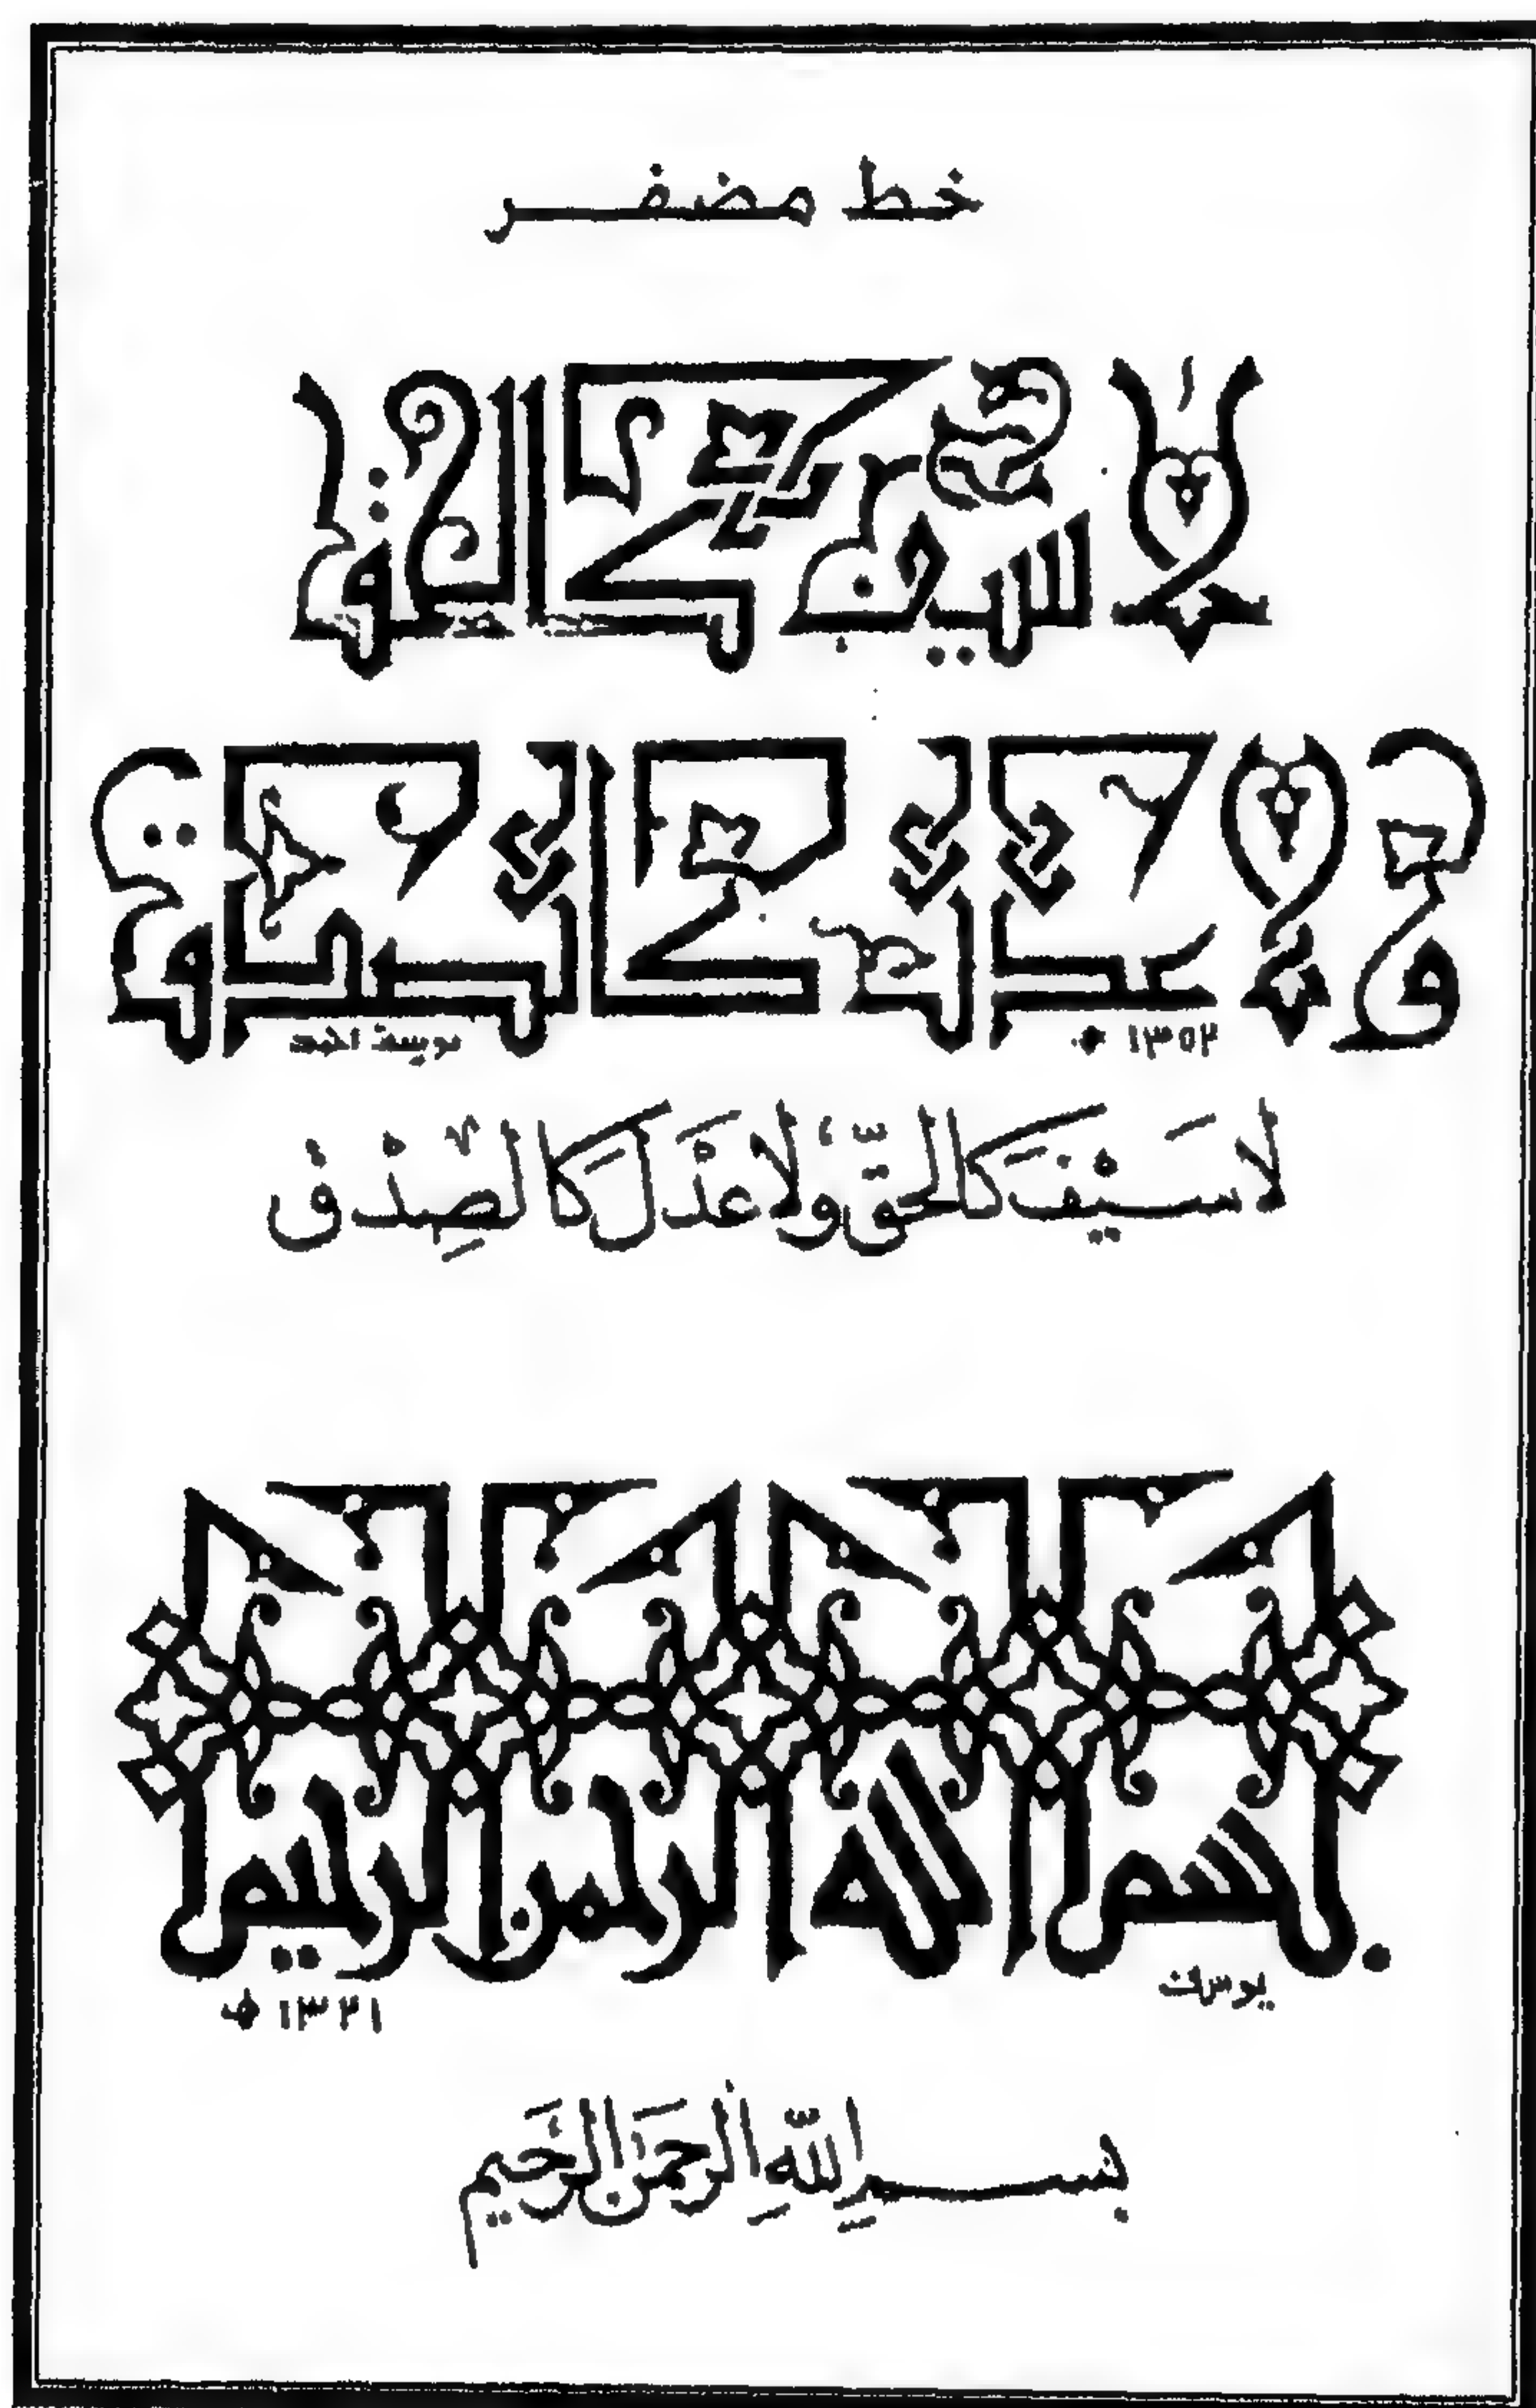 خط مضفر
لا سيف كالحق
ولا عدل كالصدق
١٣٥٢ يوسف احمد
لَا سَيْفَ كَالحقِّ وَلَا عَدْلَ كَالصِّدْق
بسم الله الرحمن الرحيم
يوسف ١٣٢١
بسمِ اللّهِ الرَّحمَنِ الرَّحيمِ